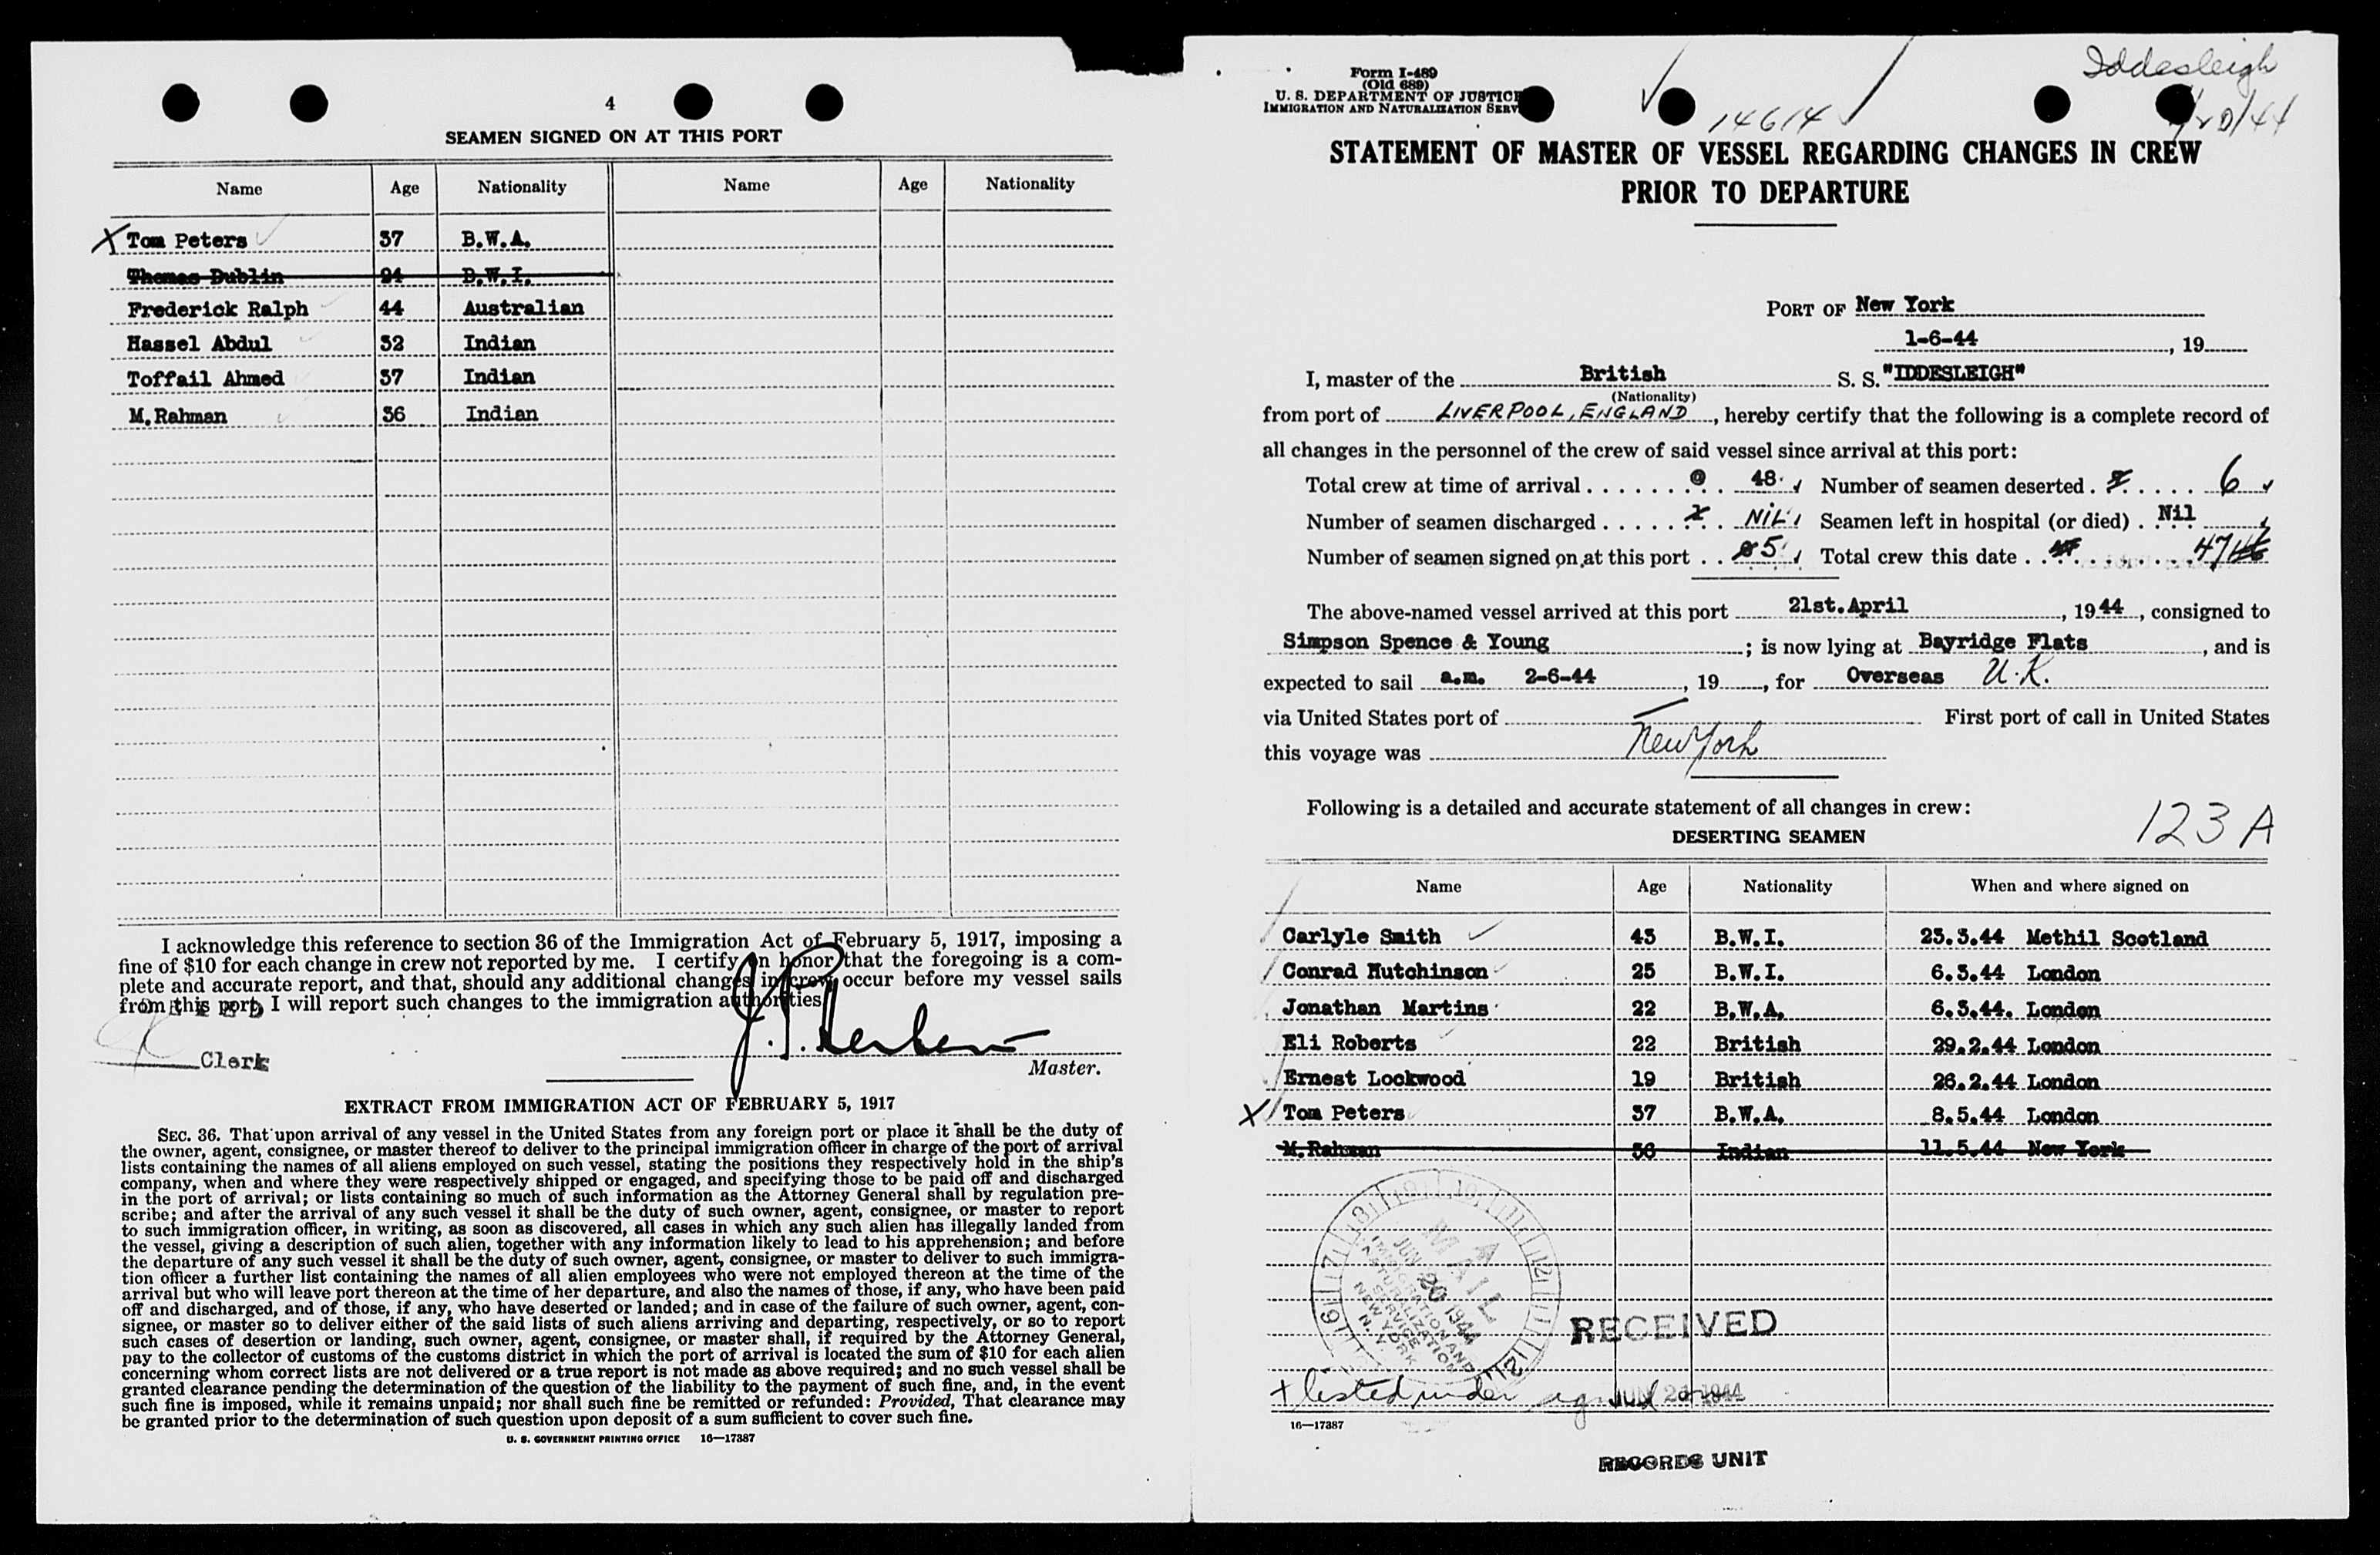 4
SEAMEN SIGNED ON AT THIS PORT
Name Age Nationality Name Age Nationality
X Tom Peters 37 B.W.A.
Thomas Dublin 24 B.W.I.
Frederick Ralph 44 Australian
Hassel Abdul 32 Indian
Toffail Ahmed 37 Indian
M.Rahman 36 Indian
I acknowledge this reference to section 36 of the Immigration Act of February 5, 1917, imposing a
fine of $10 for each change in crew not reported by me. I certify on honor that the foregoing is a com-
plete and accurate report, and that, should any additional changes in crew occur before my vessel sails
from this port, I will report such changes to the immigration authorities.
Clerk
Master.
EXTRACT FROM IMMIGRATION ACT OF FEBRUARY 5, 1917
SEC. 36. That upon arrival of any vessel in the United States from any foreign port or place it shall be the duty of
the owner, agent, consignee, or master thereof to deliver to the principal immigration officer in charge of the port of arrival
lists containing the names of all aliens employed on such vessel, stating the positions they respectively hold in the ship's
company, when and where they were respectively shipped or engaged, and specifying those to be paid off and discharged
in the port of arrival; or lists containing so much of such information as the Attorney General shall by regulation pre-
scribe; and after the arrival of any such vessel it shall be the duty of such owner, agent, consignee, or master to report
to such immigration officer, in writing, as soon as discovered, all cases in which any such alien has illegally landed from
the vessel, giving a description of such alien, together with any information likely to lead to his apprehension; and before
the departure of any such vessel it shall be the duty of such owner, agent, consignee, or master to deliver to such immigra-
tion officer a further list containing the names of all alien employees who were not employed thereon at the time of the
arrival but who will leave port thereon at the time of her departure, and also the names of those, if any, who have been paid
off and discharged, and of those, if any, who have deserted or landed; and in case of the failure of such owner, agent, con-
signee, or master so to deliver either of the said lists of such aliens arriving and departing, respectively, or so to report
such cases of desertion or landing, such owner, agent, consignee, or master shall, if required by the Attorney General,
pay to the collector of customs of the customs district in which the port of arrival is located the sum of $10 for each alien
concerning whom correct lists are not delivered or a true report is not made as above required; and no such vessel shall be
granted clearance pending the determination of the question of the liability to the payment of such fine, and, in the event
such fine is imposed, while it remains unpaid; nor shall such fine be remitted or refunded: Provided, That clearance may
be granted prior to the determination of such question upon deposit of a sum sufficient to cover such fine.
U. S. GOVERNMENT PRINTING OFFICE 16—17387
Form I-489
(Old 689)
U. S. DEPARTMENT OF JUSTICE
IMMIGRATION AND NATURALIZATION SERV
14614
Iddesleigh
STATEMENT OF MASTER OF VESSEL REGARDING CHANGES IN CREW
PRIOR TO DEPARTURE
PORT OF New York
1-6-44, 19
I, master of the British S. S. "IDDESLEIGH"
(Nationality)
from port of LIVERPOOL, ENGLAND, hereby certify that the following is a complete record of
all changes in the personnel of the crew of said vessel since arrival at this port:
Total crew at time of arrival 48 Number of seamen deserted 6
Number of seamen discharged NIL Seamen left in hospital (or died) Nil
Number of seamen signed on at this port 5 Total crew this date 47
The above-named vessel arrived at this port 21st.April, 1944, consigned to
Simpson Spence & Young; is now lying at Bayridge Flats, and is
expected to sail a.m. 2-6-44, 19, for Overseas U.K.
via United States port of — First port of call in United States
this voyage was New York
Following is a detailed and accurate statement of all changes in crew:
123 A
DESERTING SEAMEN
Name Age Nationality When and where signed on
Carlyle Smith 43 B.W.I. 23.3.44 Methil Scotland
Conrad Hutchinson 25 B.W.I. 6.3.44 London
Jonathan Martins 22 B.W.A. 6.3.44. London
Eli Roberts 22 British 29.2.44 London
Ernest Lockwood 19 British 26.2.44 London
X Tom Peters 37 B.W.A. 8.5.44 London
M.Rahman 36 Indian 11.5.44 New York
MAIL
JUN 20 1944
IMMIGRATION AND
NATURALIZATION
SERVICE
NEW YORK
N. Y.
RECEIVED
JUN 20 1944
+ listed under signed on
16—17387
RECORDS UNIT